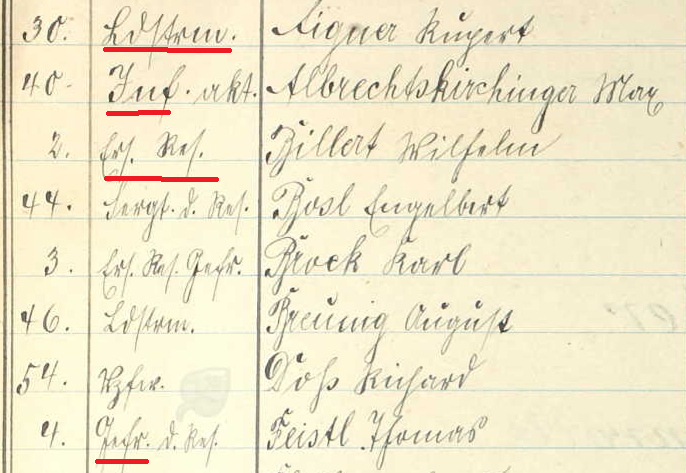 30. Ldstrm. Aigner Rupert
40. Inf. akt. Albrechtskirchinger Max
2. Ers. Res. Billert Wilhelm
44. Sergt. d. Res. Bosl Engelbert
3. Ers. Res. Gefr. Brock Karl
46. Ldstrm. Breunig August
54. Vzfw. Doß Richard
4. Gefr. d. Res. Feistl Thomas